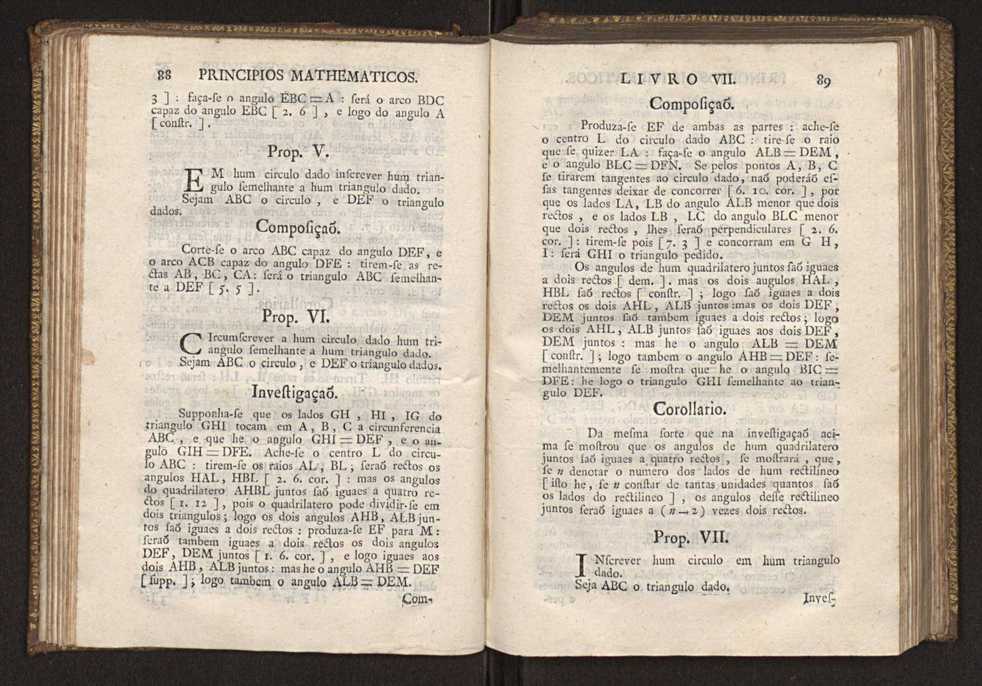 88 PRINCIPIOS MATHEMATICOS.
3 ] : faça-ſe o angulo EBC = A : ſerá o arco BDC
capaz do angulo EBC [ 2. 6 ] , e logo do angulo A
[ conſtr. ] .
Prop. V.
EM hum circulo dado inſcrever hum trian-
gulo ſemelhante a hum triangulo dado.
Sejam ABC o circulo , e DEF o triangulo
dados.
Compoſiçaõ.
Corte-ſe o arco ABC capaz do angulo DEF, e
o arco ACB capaz do angulo DFE : tirem-ſe as re-
ctas AB, BC, CA: ſerá o triangulo ABC ſemelhan-
te a DEF [ 5. 5 ] .
Prop. VI.
CIrcumſcrever a hum circulo dado hum tri-
angulo ſemelhante a hum triangulo dado.
Sejam ABC o circulo , e DEF o triangulo dados.
Inveſtigaçaõ.
Supponha-ſe que os lados GH , HI , IG do
triangulo GHI tocam em A, B, C a circunferencia
ABC , e que he o angulo GHI = DEF , e o an-
gulo GIH = DFE. Ache-ſe o centro L do circu-
lo ABC : tirem-ſe os raios AL, BL; ſeraõ rectos os
angulos HAL, HBL [ 2. 6. cor. ] : mas os angulos
do quadrilatero AHBL juntos ſaõ iguaes a quatro re-
ctos [ 1. 12 ] , pois o quadrilatero pode dividir-ſe em
dois triangulos; logo os dois angulos AHB, ALB jun-
tos ſaõ iguaes a dois rectos : produza-ſe EF para M :
ſeraõ tambem iguaes a dois rectos os dois angulos
DEF, DEM juntos [ 1. 6. cor. ] , e logo iguaes aos
dois AHB, ALB juntos : mas he o angulo AHB = DEF
[ ſupp. ] ; logo tambem o angulo ALB = DEM.
Com-
LIVRO VII. 89
Compoſiçaõ.
Produza-ſe EF de ambas as partes : ache-ſe
o centro L do circulo dado ABC : tire-ſe o raio
que ſe quizer LA : faça-ſe o angulo ALB = DEM ,
e o angulo BLC = DFN. Se pelos pontos A, B, C
ſe tirarem tangentes ao circulo dado, naõ poderáõ eſ-
ſas tangentes deixar de concorrer [ 6. 10. cor. ] , por
que os lados LA, LB do angulo ALB menor que dois
rectos , e os lados LB , LC do angulo BLC menor
que dois rectos , lhes ſeraõ perpendiculares [ 2. 6.
cor. ] : tirem-ſe pois [ 7. 3 ] e concorram em G H,
I : ſerá GHI o triangulo pedido.
Os angulos de hum quadrilatero juntos ſaõ iguaes
a dois rectos [ dem. ] . mas os dois augulos HAL ,
HBL ſaõ rectos [ conſtr. ] ; logo ſaõ iguaes a dois
rectos os dois AHL, ALB juntos : mas os dois DEF,
DEM juntos ſaõ tambem iguaes a dois rectos ; logo
os dois AHL, ALB juntos ſaõ iguaes aos dois DEF,
DEM juntos : mas he o angulo ALB = DEM
[ conſtr. ] ; logo tambem o angulo AHB = DEF : ſe-
melhantemente ſe moſtra que he o angulo BIC =
DFE : he logo o triangulo GHI ſemelhante ao trian-
gulo DEF.
Corollario.
Da meſma ſorte que na inveſtigaçaõ aci-
ma ſe moſtrou que os angulos de hum quadrilatero
juntos ſaõ iguaes a quatro rectos, ſe moſtrará , que ,
ſe n denotar o numero dos lados de hum rectilineo
[ iſto he , ſe n conſtar de tantas unidades quantos ſaõ
os lados do rectilineo ] , os angulos deſſe rectilineo
juntos ſeraõ iguaes a ( n — 2 ) vezes dois rectos.
Prop. VII.
INſcrever hum circulo em hum triangulo
dado.
Seja ABC o triangulo dado.
Inveſ-